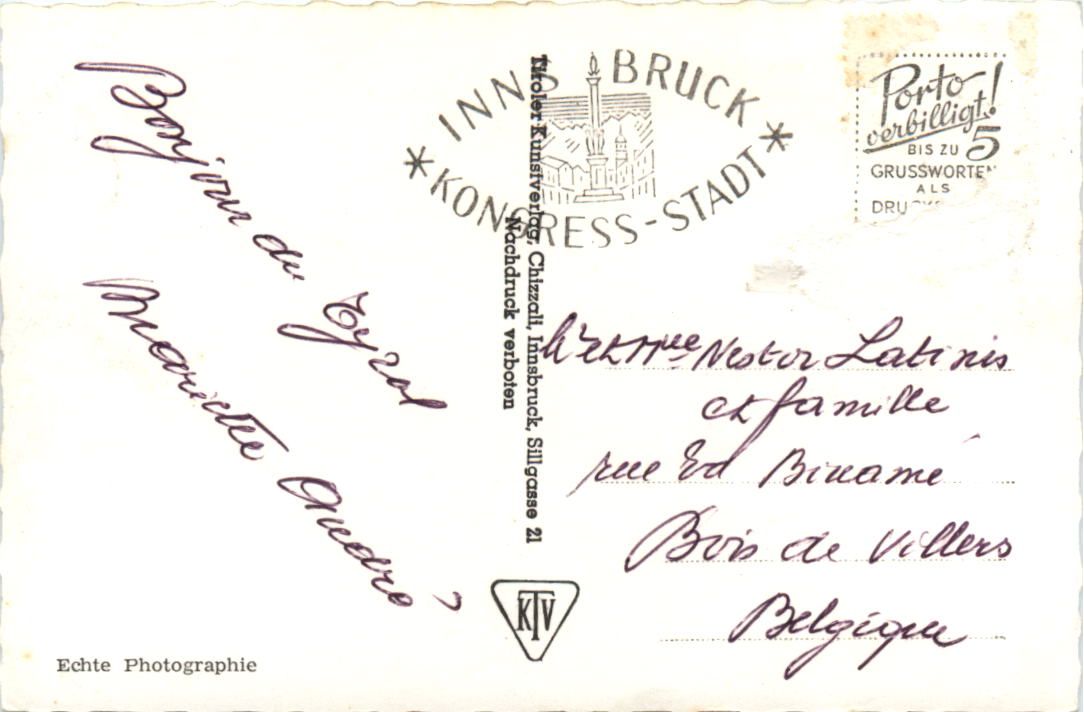 Bonjour du Tyrol
Mariette André
Echte Photographie
Tiroler Kunstverlag, Chizzali, Innsbruck, Sillgasse 21
Nachdruck verboten
KTV
INNSBRUCK
* KONGRESS-STADT *
Porto
verbilligt!
BIS ZU 5
GRUSSWORTEN
ALS
et Nestor Latinis
et famille
rue Ed Binamé
Bois de Villers
Belgique